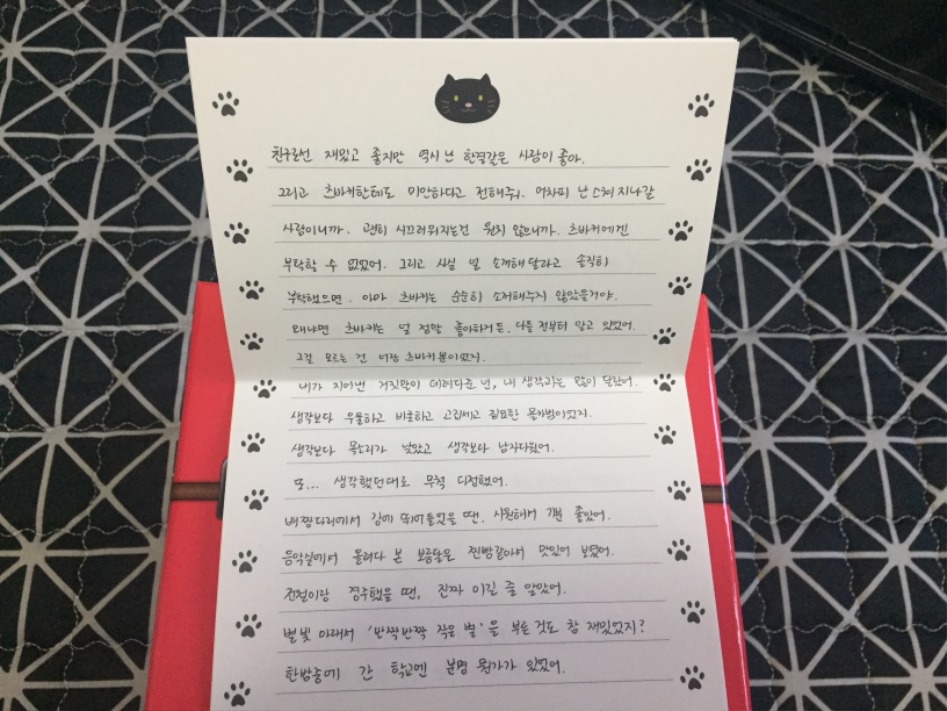 친구로선 재밌고 좋지만 역시 난 한결같은 사람이 좋아.
그리고 츠바키한테도 미안하다고 전해줘. 어차피 난 스쳐 지나갈
사람이니까. 괜히 시끄러워지는건 원치 않으니까. 츠바키에겐
부탁할 수 없었어. 그리고 사실 널 소개해 달라고 솔직히
부탁했으면. 아마 츠바키는 순순히 소개해주지 않았을거야.
왜냐면 츠바키는 널 정말 좋아하거든. 다들 전부터 알고 있었어.
그걸 모르는 건 너랑 츠바키뿐이었지.
내가 지어낸 거짓말이 데려다준 넌, 내 생각과는 많이 달랐어.
생각보다 우울하고 비굴하고 고집세고 집요한 몰카범이었지.
생각보다 목소리가 낮았고 생각보다 남자다웠어.
또... 생각했던대로 무척 다정했어.
배짱다리에서 강에 뛰어들었을 땐, 시원해서 기분 좋았어.
음악실에서 올려다 본 보름달은 찐빵같아서 맛있어 보였어.
전철이랑 경주했을 땐, 진짜 이길 줄 알았어.
별빛 아래서 '반짝반짝 작은 별'을 부른 것도 참 재밌었지?
한밤중에 간 학교엔 분명 뭔가가 있었어.